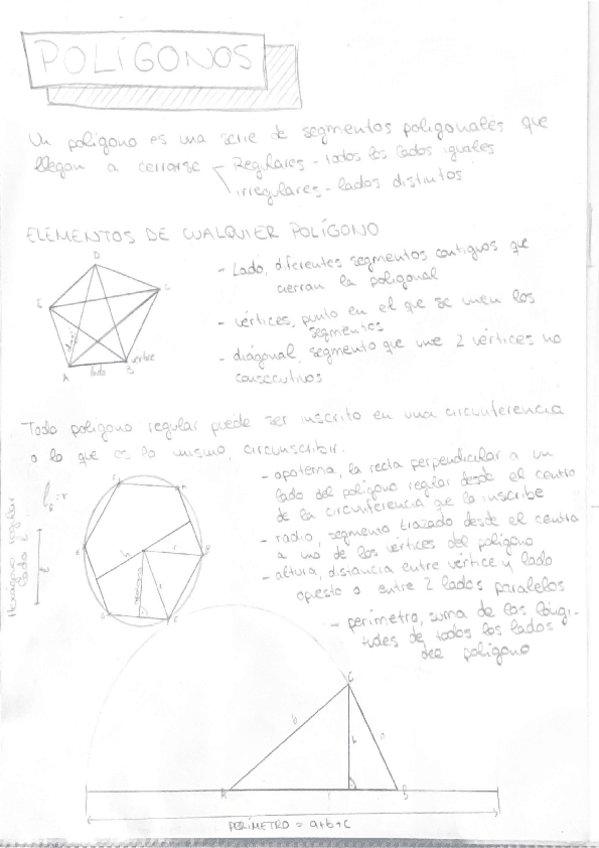 POLÍGONOS
Un polígono es una serie de segmentos poligonales que
llegan a cerrarse - Regulares - todos los lados iguales
irregulares - lados distintos
ELEMENTOS DE CUALQUIER POLÍGONO
- Lado, diferentes segmentos contiguos que
cierran la poligonal
- vértices, punto en el que se unen los
segmentos
- diágonal, segmento que une 2 vértices no
consecutivos
D
E
C
A
B
lado
vértice
Todo polígono regular puede ser inscrito en una circunferencia
o lo que es lo mismo, circunscribir.
- apotema, la recta perpendicular a un
lado del polígono regular desde el centro
de la circunferencia que la inscribe
- radio, segmento trazado desde el centro
a uno de los vértices del polígono
- altura, distancia entre vértice y lado
opuesto o entre 2 lados paralelos
- perímetro, suma de las longi-
tudes de todos los lados
del polígono
Hexágono regular
lado l
C
b
h
A
B
PERÍMETRO = a+b+c